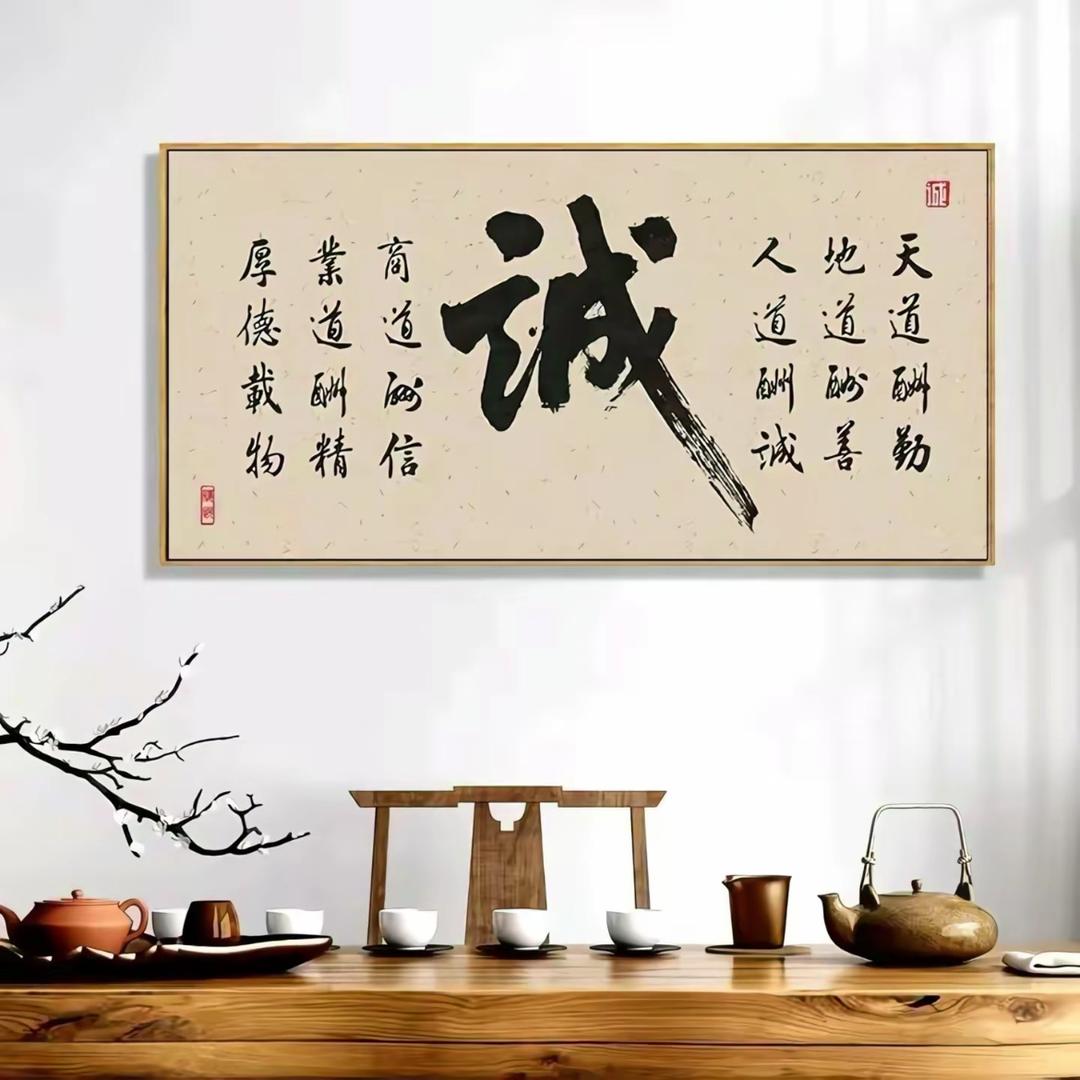 誠
天道酬勤
地道酬善
人道酬誠
誠
商道酬信
業道酬精
厚德載物